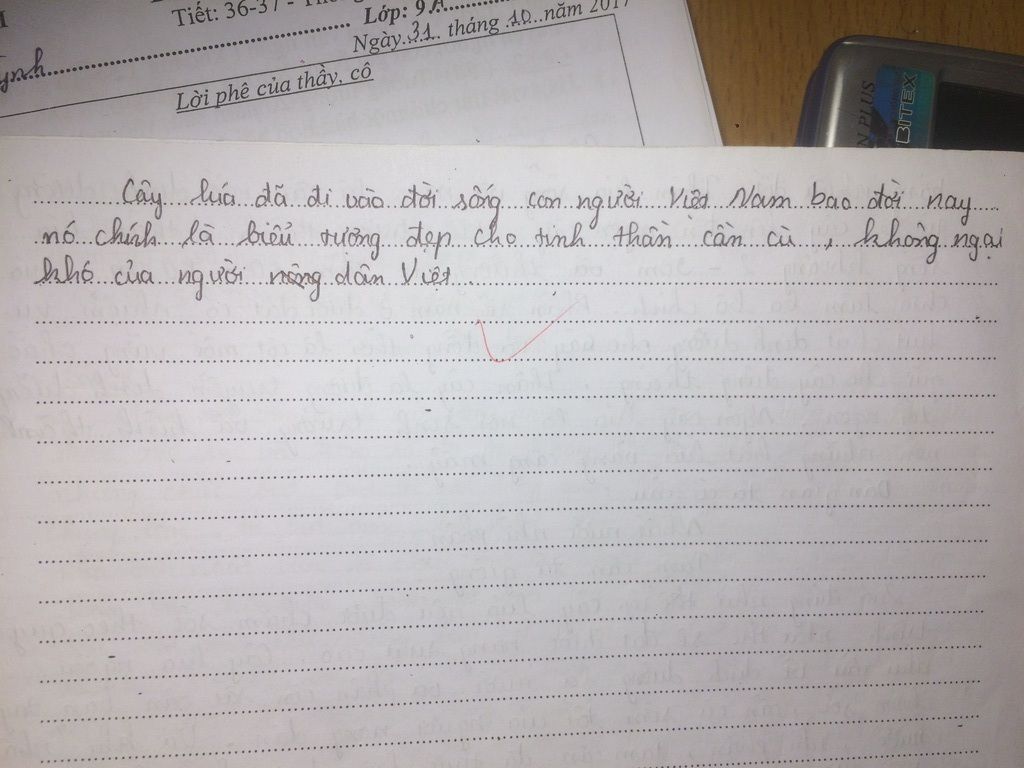 Tiết: 36-37 -
Lớp: 9A
Ngày 31 tháng 10 năm 2017
Lời phê của thầy, cô
BITEX
PLUS
Cây lúa đã đi vào đời sống con người Việt Nam bao đời nay
nó chính là biểu tượng đẹp cho tinh thần cần cù, không ngại
khó của người nông dân Việt.